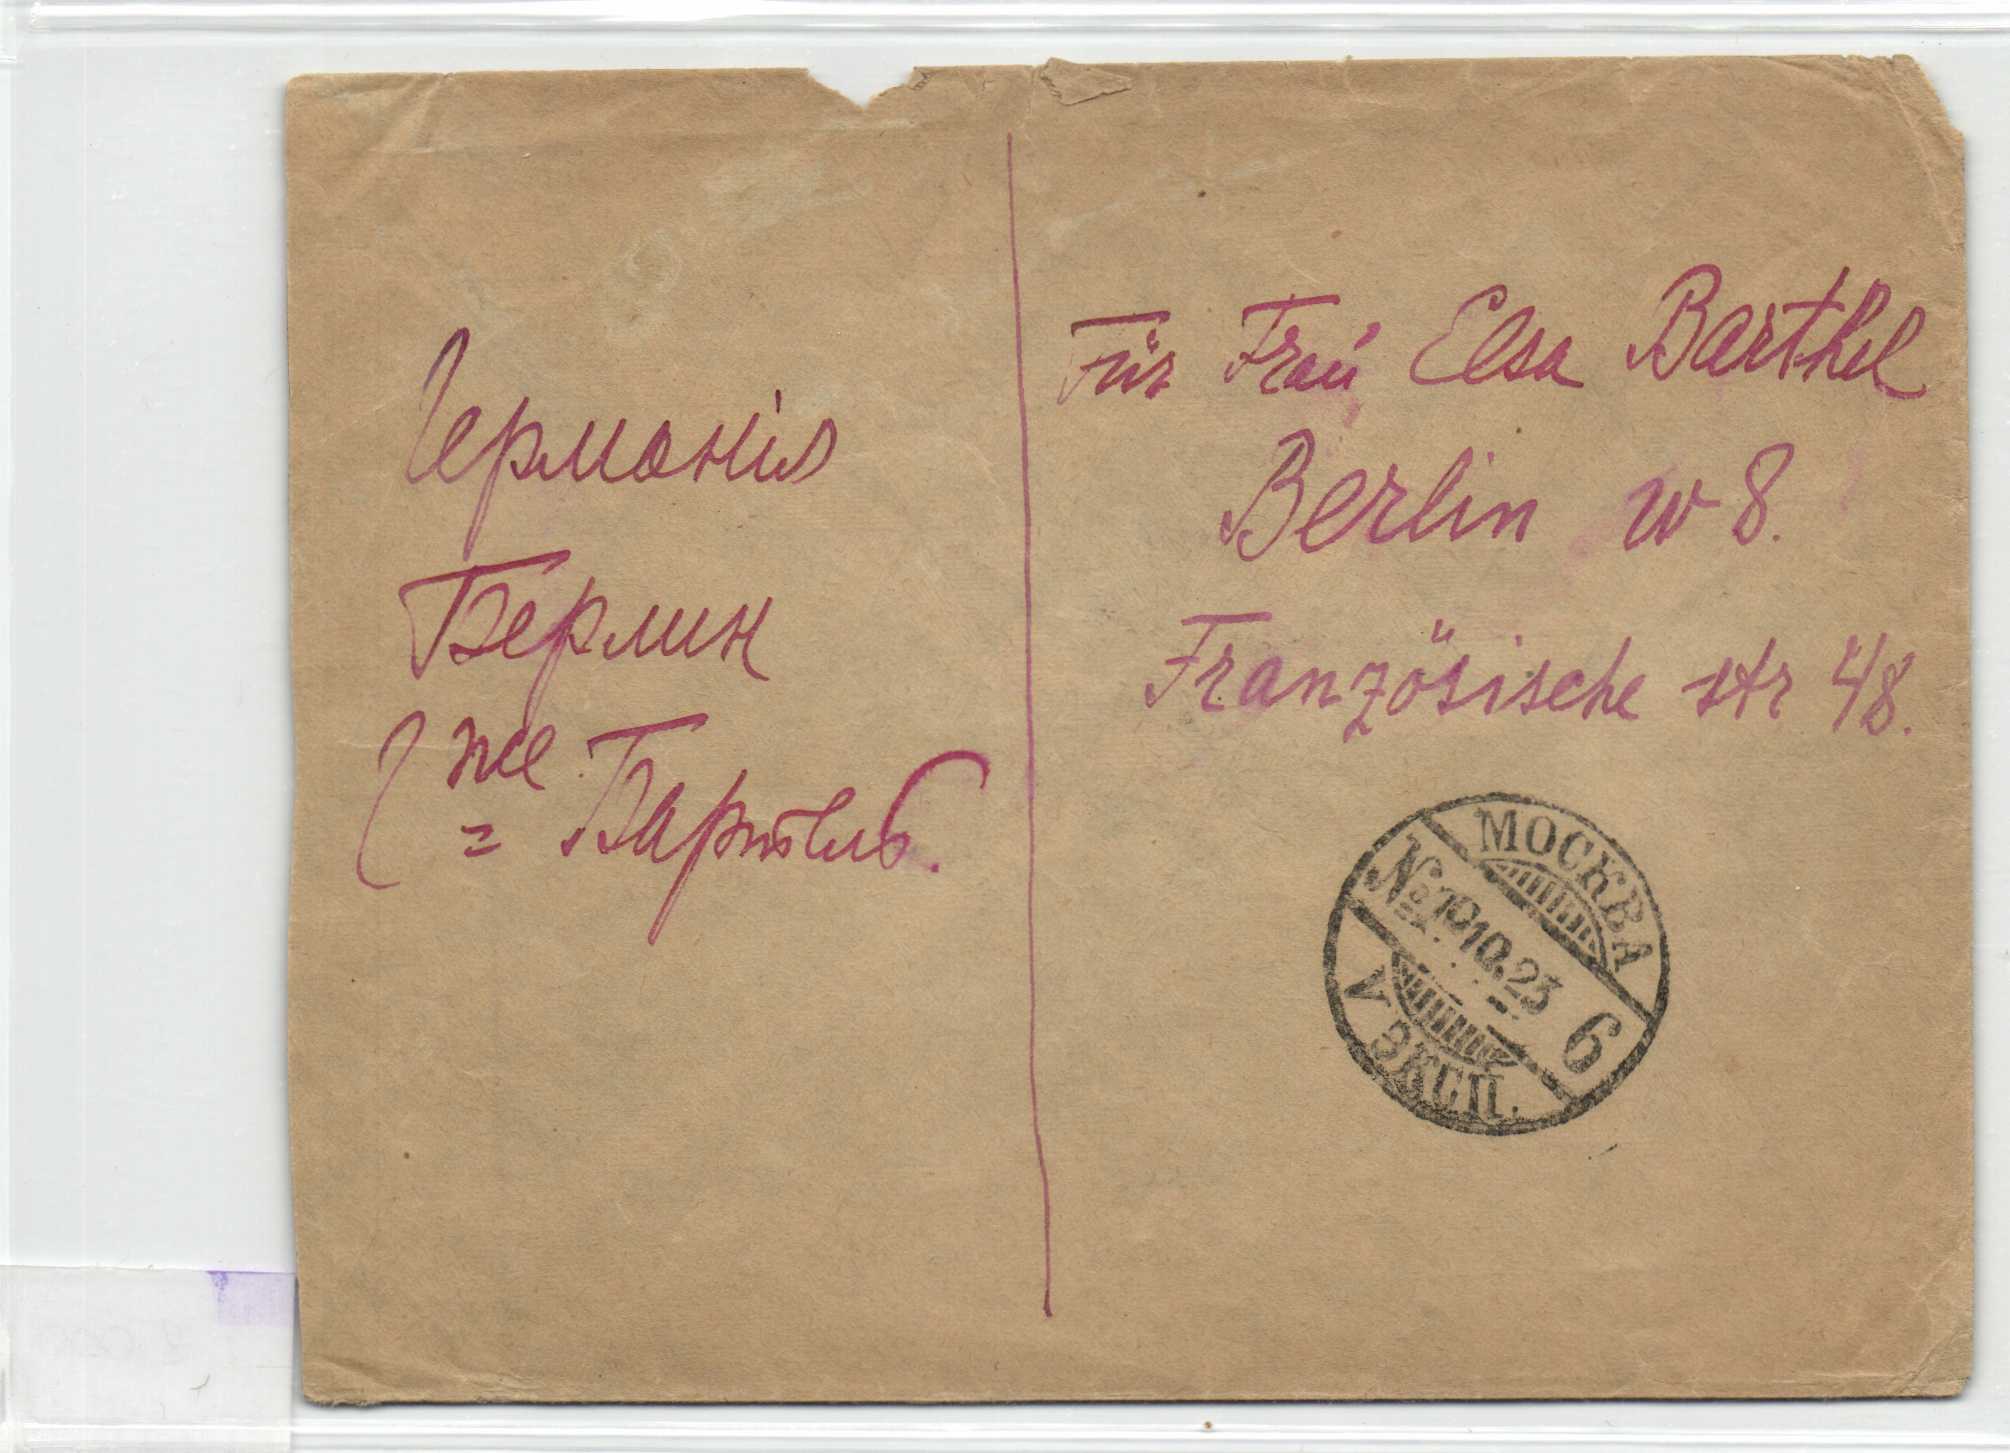 Германія
Берлин
Гже Бартель.
Für Fraú Elsa Barthel
Berlin w 8.
Französische str 48.
МОСКВА
№ 1 9 10.23 6
V ЭКСП.